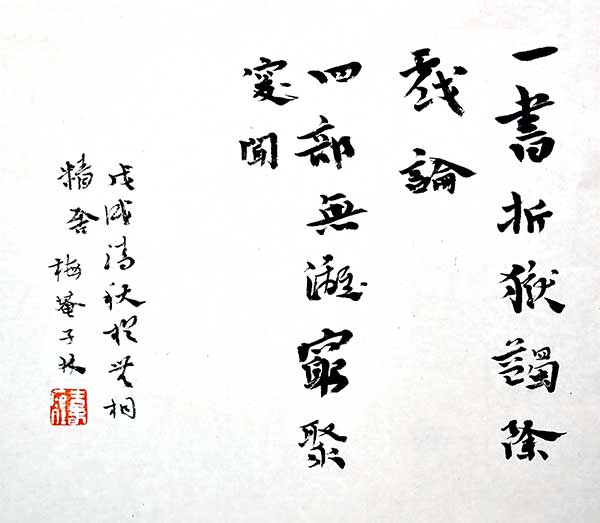 一書折獄蠲除
戲論
四部無漏窮聚
聞
戊戌清秋於無相
精舍 梅菴子林